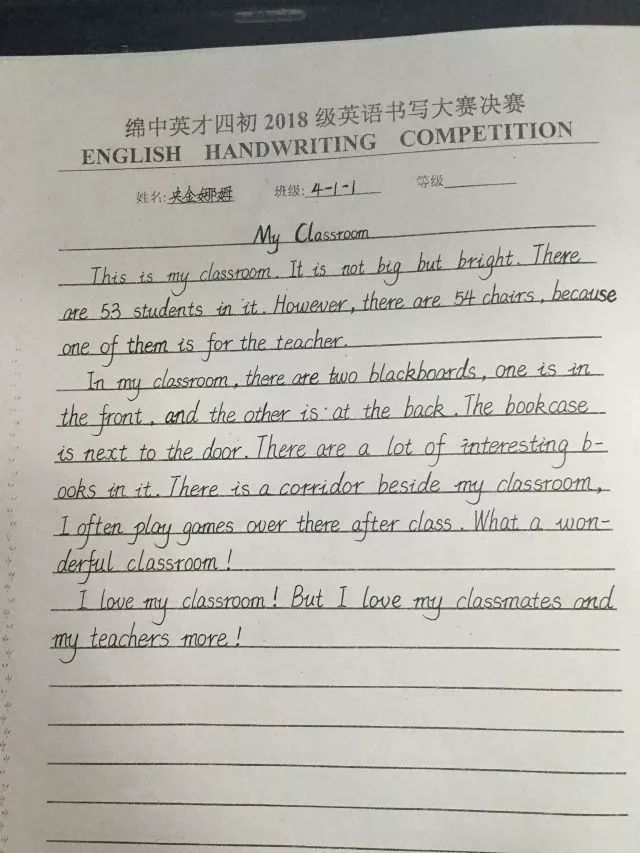 绵中英才四初2018级英语书写大赛决赛
ENGLISH HANDWRITING COMPETITION
姓名:央金娜姆 班级:4-1-1 等级
My Classroom
This is my classroom. It is not big but bright. There
are 53 students in it. However, there are 54 chairs, because
one of them is for the teacher.
In my classroom, there are two blackboards, one is in
the front, and the other is at the back. The bookcase
is next to the door. There are a lot of interesting b-
ooks in it. There is a corridor beside my classroom,
I often play games over there after class. What a won-
derful classroom!
I love my classroom! But I love my classmates and
my teachers more!